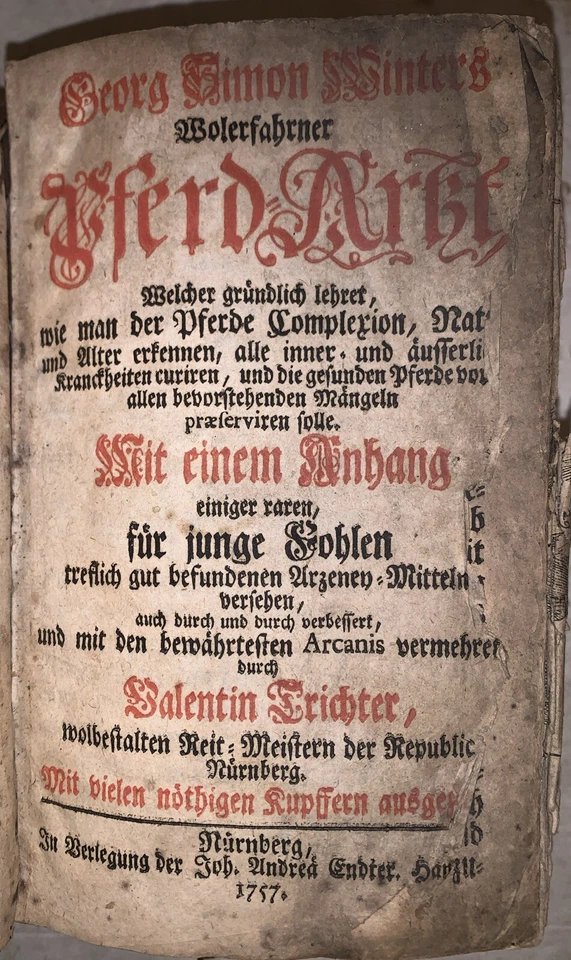 Georg Simon Winters
Wolerfahrner
Pferd-Artzt,
Welcher gründlich lehret,
wie man der Pferde Complexion, Nat
und Alter erkennen, alle inner- und äusserli
Kranckheiten curiren, und die gesunden Pferde vor
allen bevorstehenden Mängeln
præserviren solle.
Mit einem Anhang
einiger raren,
für junge Fohlen
treflich gut befundenen Arzeney-Mitteln
versehen,
auch durch und durch verbessert,
und mit den bewährtesten Arcanis vermehret
durch
Valentin Trichter,
wolbestalten Reit-Meistern der Republic
Nürnberg.
Mit vielen nöthigen Kupffern ausge
Nürnberg,
In Verlegung der Joh. Andreä Endter.
1757.